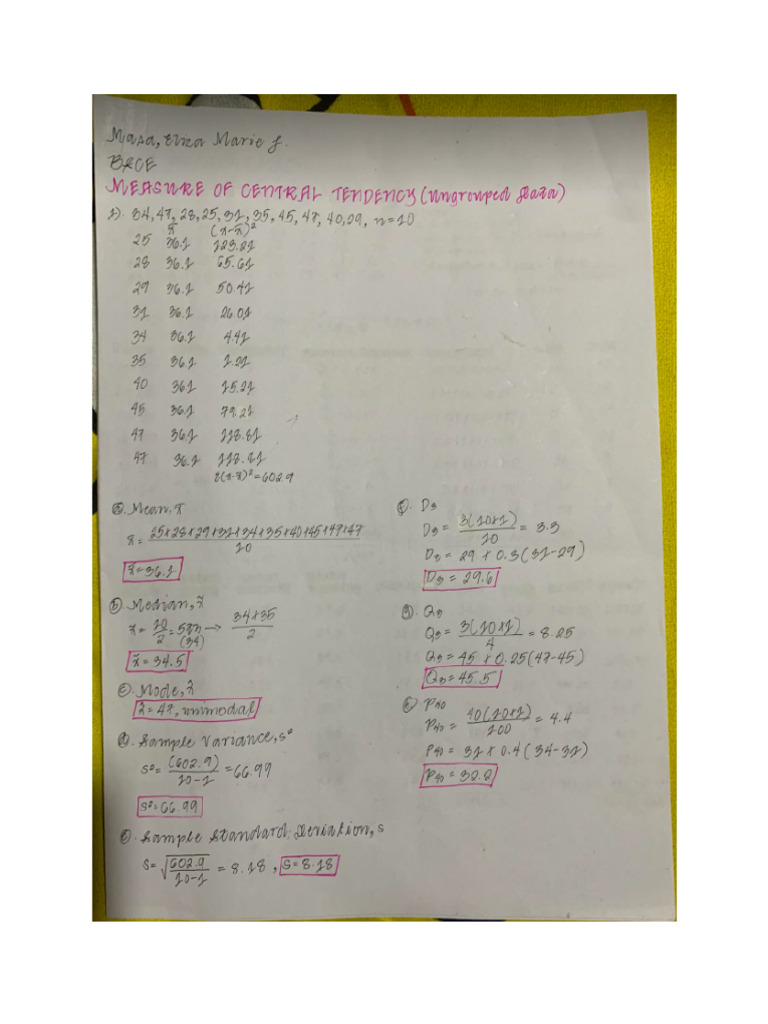 Masa, Elza Marie J.
BSCE
MEASURE OF CENTRAL TENDENCY (Ungrouped Data)
1). 34, 47, 28, 25, 31, 35, 45, 47, 40, 29, n=10
x̄ (x-x̄)²
25 36.1 123.21
28 36.1 65.61
29 36.1 50.41
31 36.1 26.01
34 36.1 4.41
35 36.1 1.21
40 36.1 15.21
45 36.1 79.21
47 36.1 118.81
47 36.1 118.81
Σ(x-x̄)²=602.9
a. Mean, x̄
x̄ = 25+28+29+31+34+35+40+45+47+47
10
x̄ = 36.1
b. Median, x̃
x̃ = 10/2 = 5th → 34+35/2
(34)
x̃ = 34.5
c. Mode, x̂
x̂ = 47, unimodal
d. Sample Variance, s²
s² = (602.9)/10-1 = 66.99
s² = 66.99
e. Sample Standard Deviation, s
s = √602.9/10-1 = 8.18, s = 8.18
f. D3
D3 = 3(10+1)/10 = 3.3
D3 = 29 + 0.3(31-29)
D3 = 29.6
g. Q3
Q3 = 3(10+1)/4 = 8.25
Q3 = 45 + 0.25(47-45)
Q3 = 45.5
P40
P40 = 40(10+1)/100 = 4.4
P40 = 31 + 0.4(34-31)
P40 = 32.2